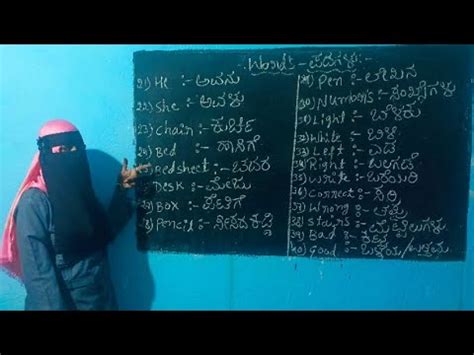 Words - ಪದಗಳು :-
21) He :- ಅವನು
22) She :- ಅವಳು
23) Chair :- ಕುರ್ಚಿ
24) Bed :- ಹಾಸಿಗೆ
Bedsheet :- ಚಾದರ
Desk :- ಮೇಜು
Box :- ಪೆಟ್ಟಿಗೆ
Pencil :- ಸೀಸದ ಕಡ್ಡಿ
Pen :- ಲೇಖನಿ
Numbers :- ಸಂಖ್ಯೆಗಳು
31) Light :- ಬೆಳಕು
32) White :- ಬಿಳಿ
33) Left :- ಎಡ
34) Right :- ಬಲಗಡೆ
35) Write :- ಬರೆಯಿರಿ
36) Correct :- ಸರಿ
37) Wrong :- ತಪ್ಪು
38) Stairs :- ಮೆಟ್ಟಿಲುಗಳು
39) Bad :- ಕೆಟ್ಟ
40) Good :- ಒಳ್ಳೆಯ/ಉತ್ತಮ